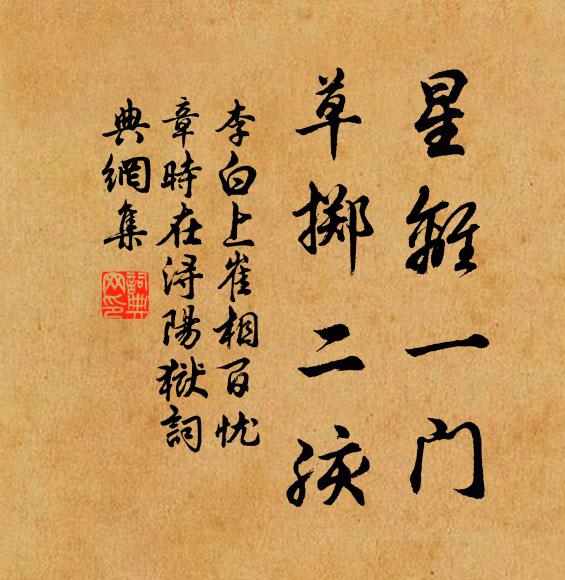 星離一門
草擲二孩
李白上崔相百忧
章時在浔陽獄詞
典網集
詞典
网印